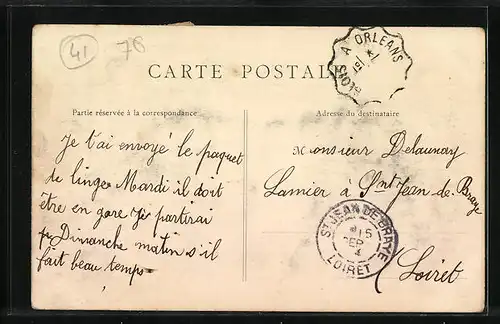 41
78
BLOIS A ORLEANS
15
CARTE POSTALE
Partie réservée à la correspondance
Adresse du destinataire
Je t'ai envoyé le paquet
de linge Mardi il doit
être en gare Je partirai
Dimanche matin s'il
fait beau temps
Monsieur Delaunay
Lamier à St Jean de Braye
Loiret
ST JEAN DE BRAYE
15
SEPT
LOIRET